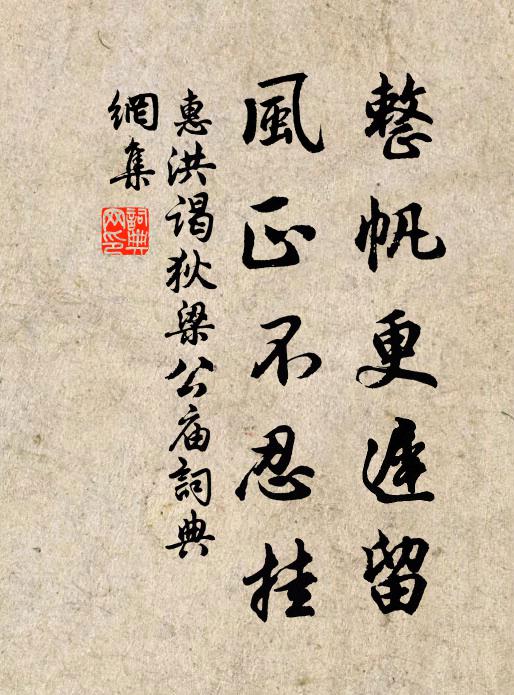 整帆更遲留
風正不忍挂
惠洪謁狄梁公庙詞典
網集
詞典
网印